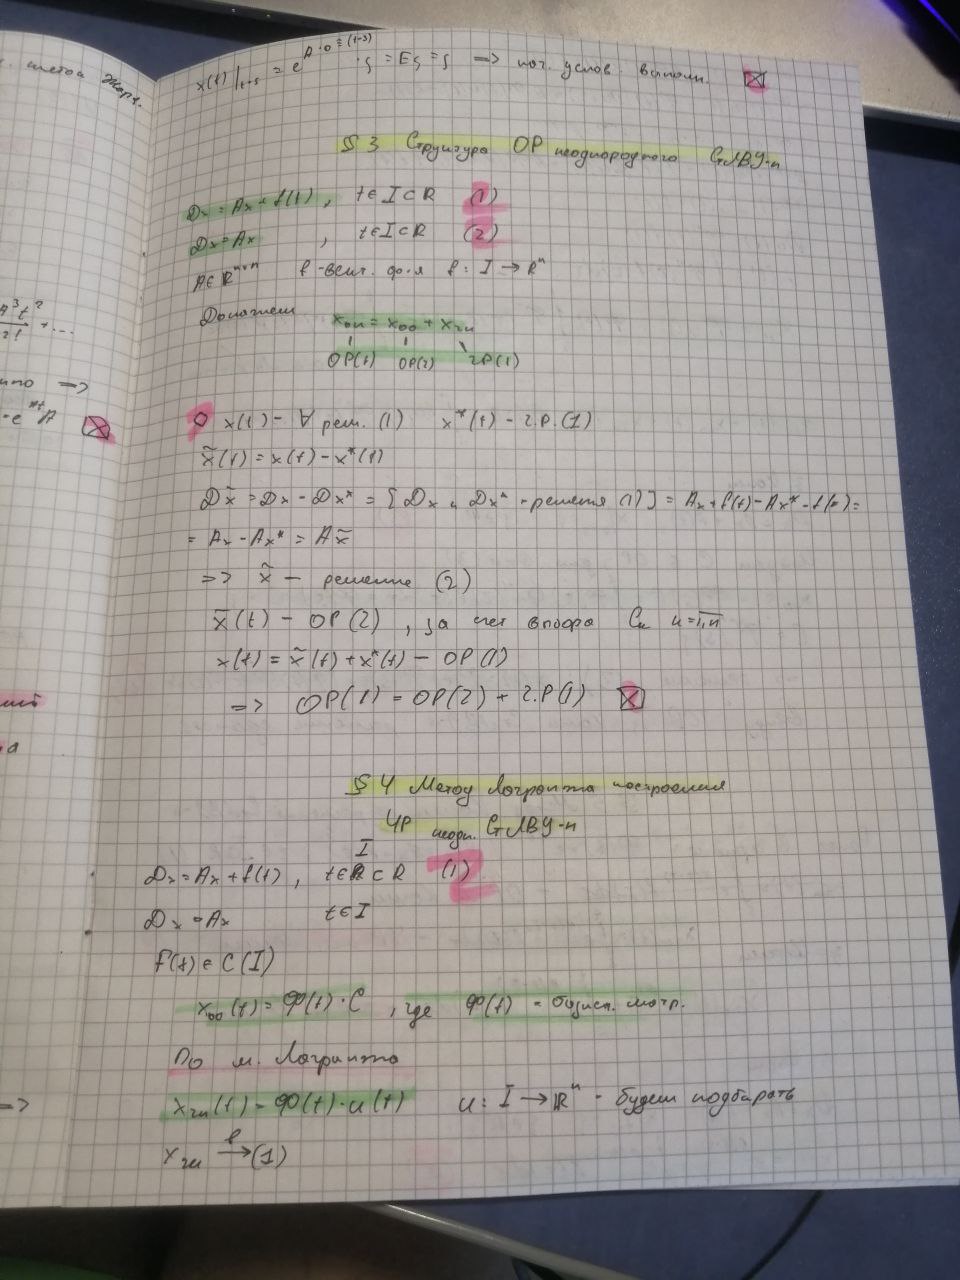 . метод Жорд.
x(t)|t=s = e^A·0=(t-s) ·ξ = Eξ = ξ => нач. услов. выполн.
§ 3 Структура ОР неоднородного СЛВУ-n
Dx = Ax + f(t), t∈I⊂R (1)
Dx = Ax , t∈I⊂R (2)
A∈R^n×n f - вект. ф-я f: I → R^n
A³t²/2! + ...
Докажем xон = xоо + xчн
ОР(1) ОР(2) ЧР(1)
=>
x(t) - ∀ реш. (1) x*(t) - ч.Р.(1)
x̃(t) = x(t) - x*(t)
Dx̃ = Dx - Dx* = [Dx и Dx* - решения (1)] = Ax + f(t) - Ax* - f(t) =
= Ax - Ax* = Ax̃
=> x̃ — решение (2)
x̃(t) - ОР(2) , за счет выбора Cк к=1,n
x(t) = x̃(t) + x*(t) - ОР(1)
=> ОР(1) = ОР(2) + ч.Р(1)
§ 4 Метод Лагранжа построения
ЧР неодн. СЛВУ-n
Dx = Ax + f(t), t∈I⊂R (1)
Dx = Ax t∈I
f(t) ∈ C(I)
xоо(t) = Ф(t)·C , где Ф(t) - базисн. матр.
По м. Лагранжа
=>
xчн(t) = Ф(t)·u(t) u: I → R^n - будем подбирать
xчн →в (1)